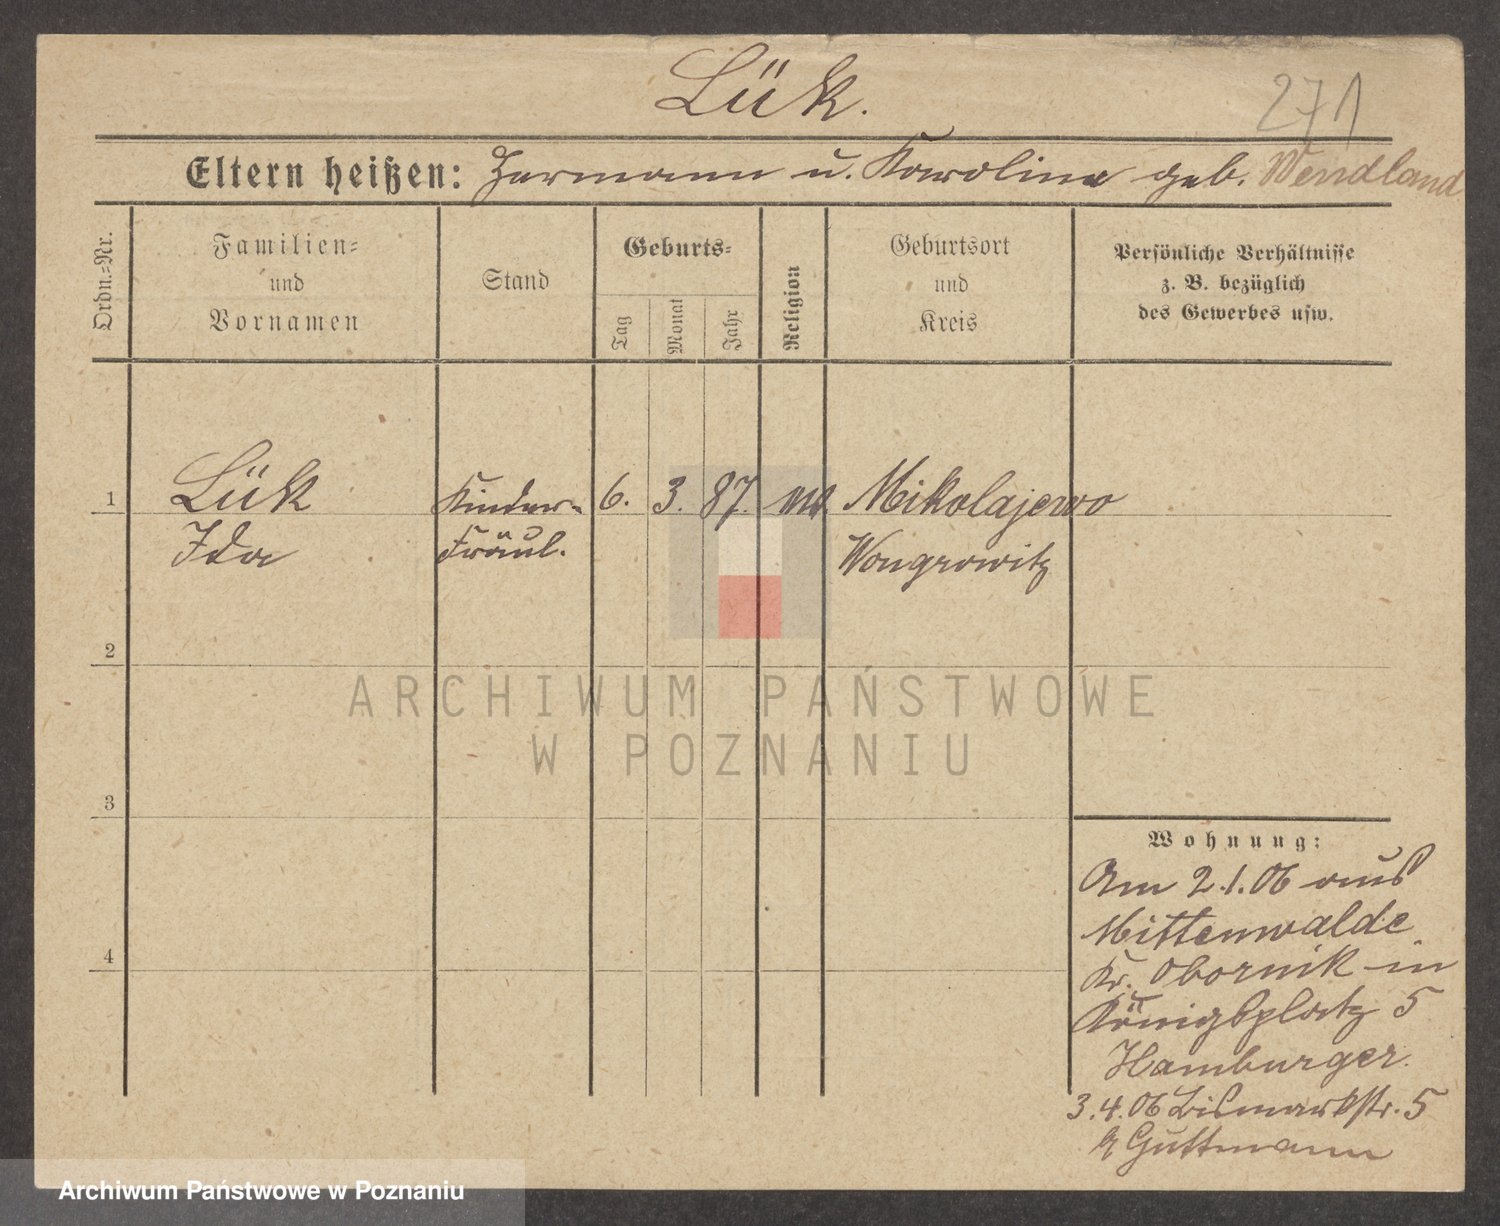 Lük.
271
Eltern heißen: Hermann u. Karoline geb. Wendland
Ordn.-Nr.
Familien-
und
Vornamen
Stand
Geburts-
Tag
Monat
Jahr
Religion
Geburtsort
und
Kreis
Persönliche Verhältnisse
z. B. bezüglich
des Gewerbes usw.
1
Lük
Ida
Kinder-
Fräul.
6. 3. 87.
Mikolajewo
Wongrowitz
2
3
4
Wohnung:
Am 2.1.06 aus
Mittenwalde
Kr. Obornik in
Königsplatz 5
Hamburger.
3.4.06 Bismarkstr. 5
Guttmann
ARCHIWUM PAŃSTWOWE
W POZNANIU
Archiwum Państwowe w Poznaniu